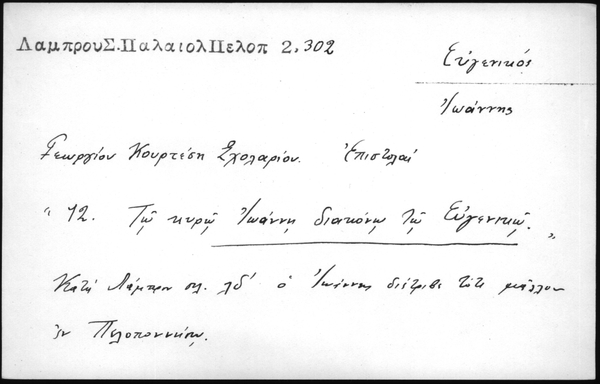 ΛαμπρουΣ.ΠαλαιολΠελοπ 2,302
Εὐγενικός
Ἰωάννης
Γεωργίου Κουρτέση Σχολαρίου. Ἐπιστολαί
"12. Τῷ κυρῷ Ἰωάννῃ διακόνῳ τῷ Εὐγενικῷ."
Κατὰ Λάμπρον σελ. λδ' ὁ Ἰωάννης διέτριβε τότε μᾶλλον
ἐν Πελοποννήσῳ.